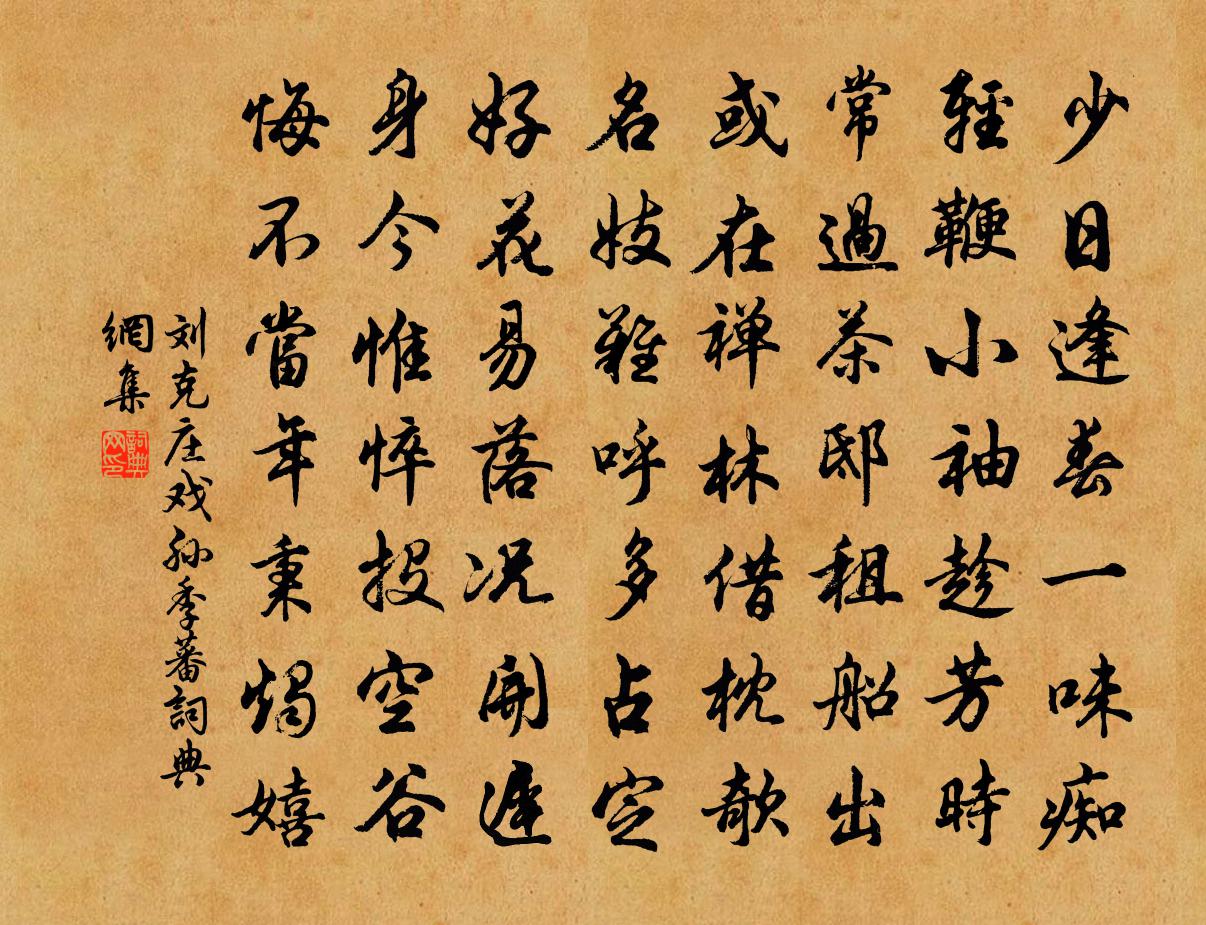 少日逢春一味痴
輕鞭小袖趁芳時
常過茶邸租船出
或在禅林借枕欹
名妓難呼多占定
好花易落况開遲
身今惟悴投空谷
悔不當年秉燭嬉
刘克庄戏孙季蕃詞典
網集
詞典
网印